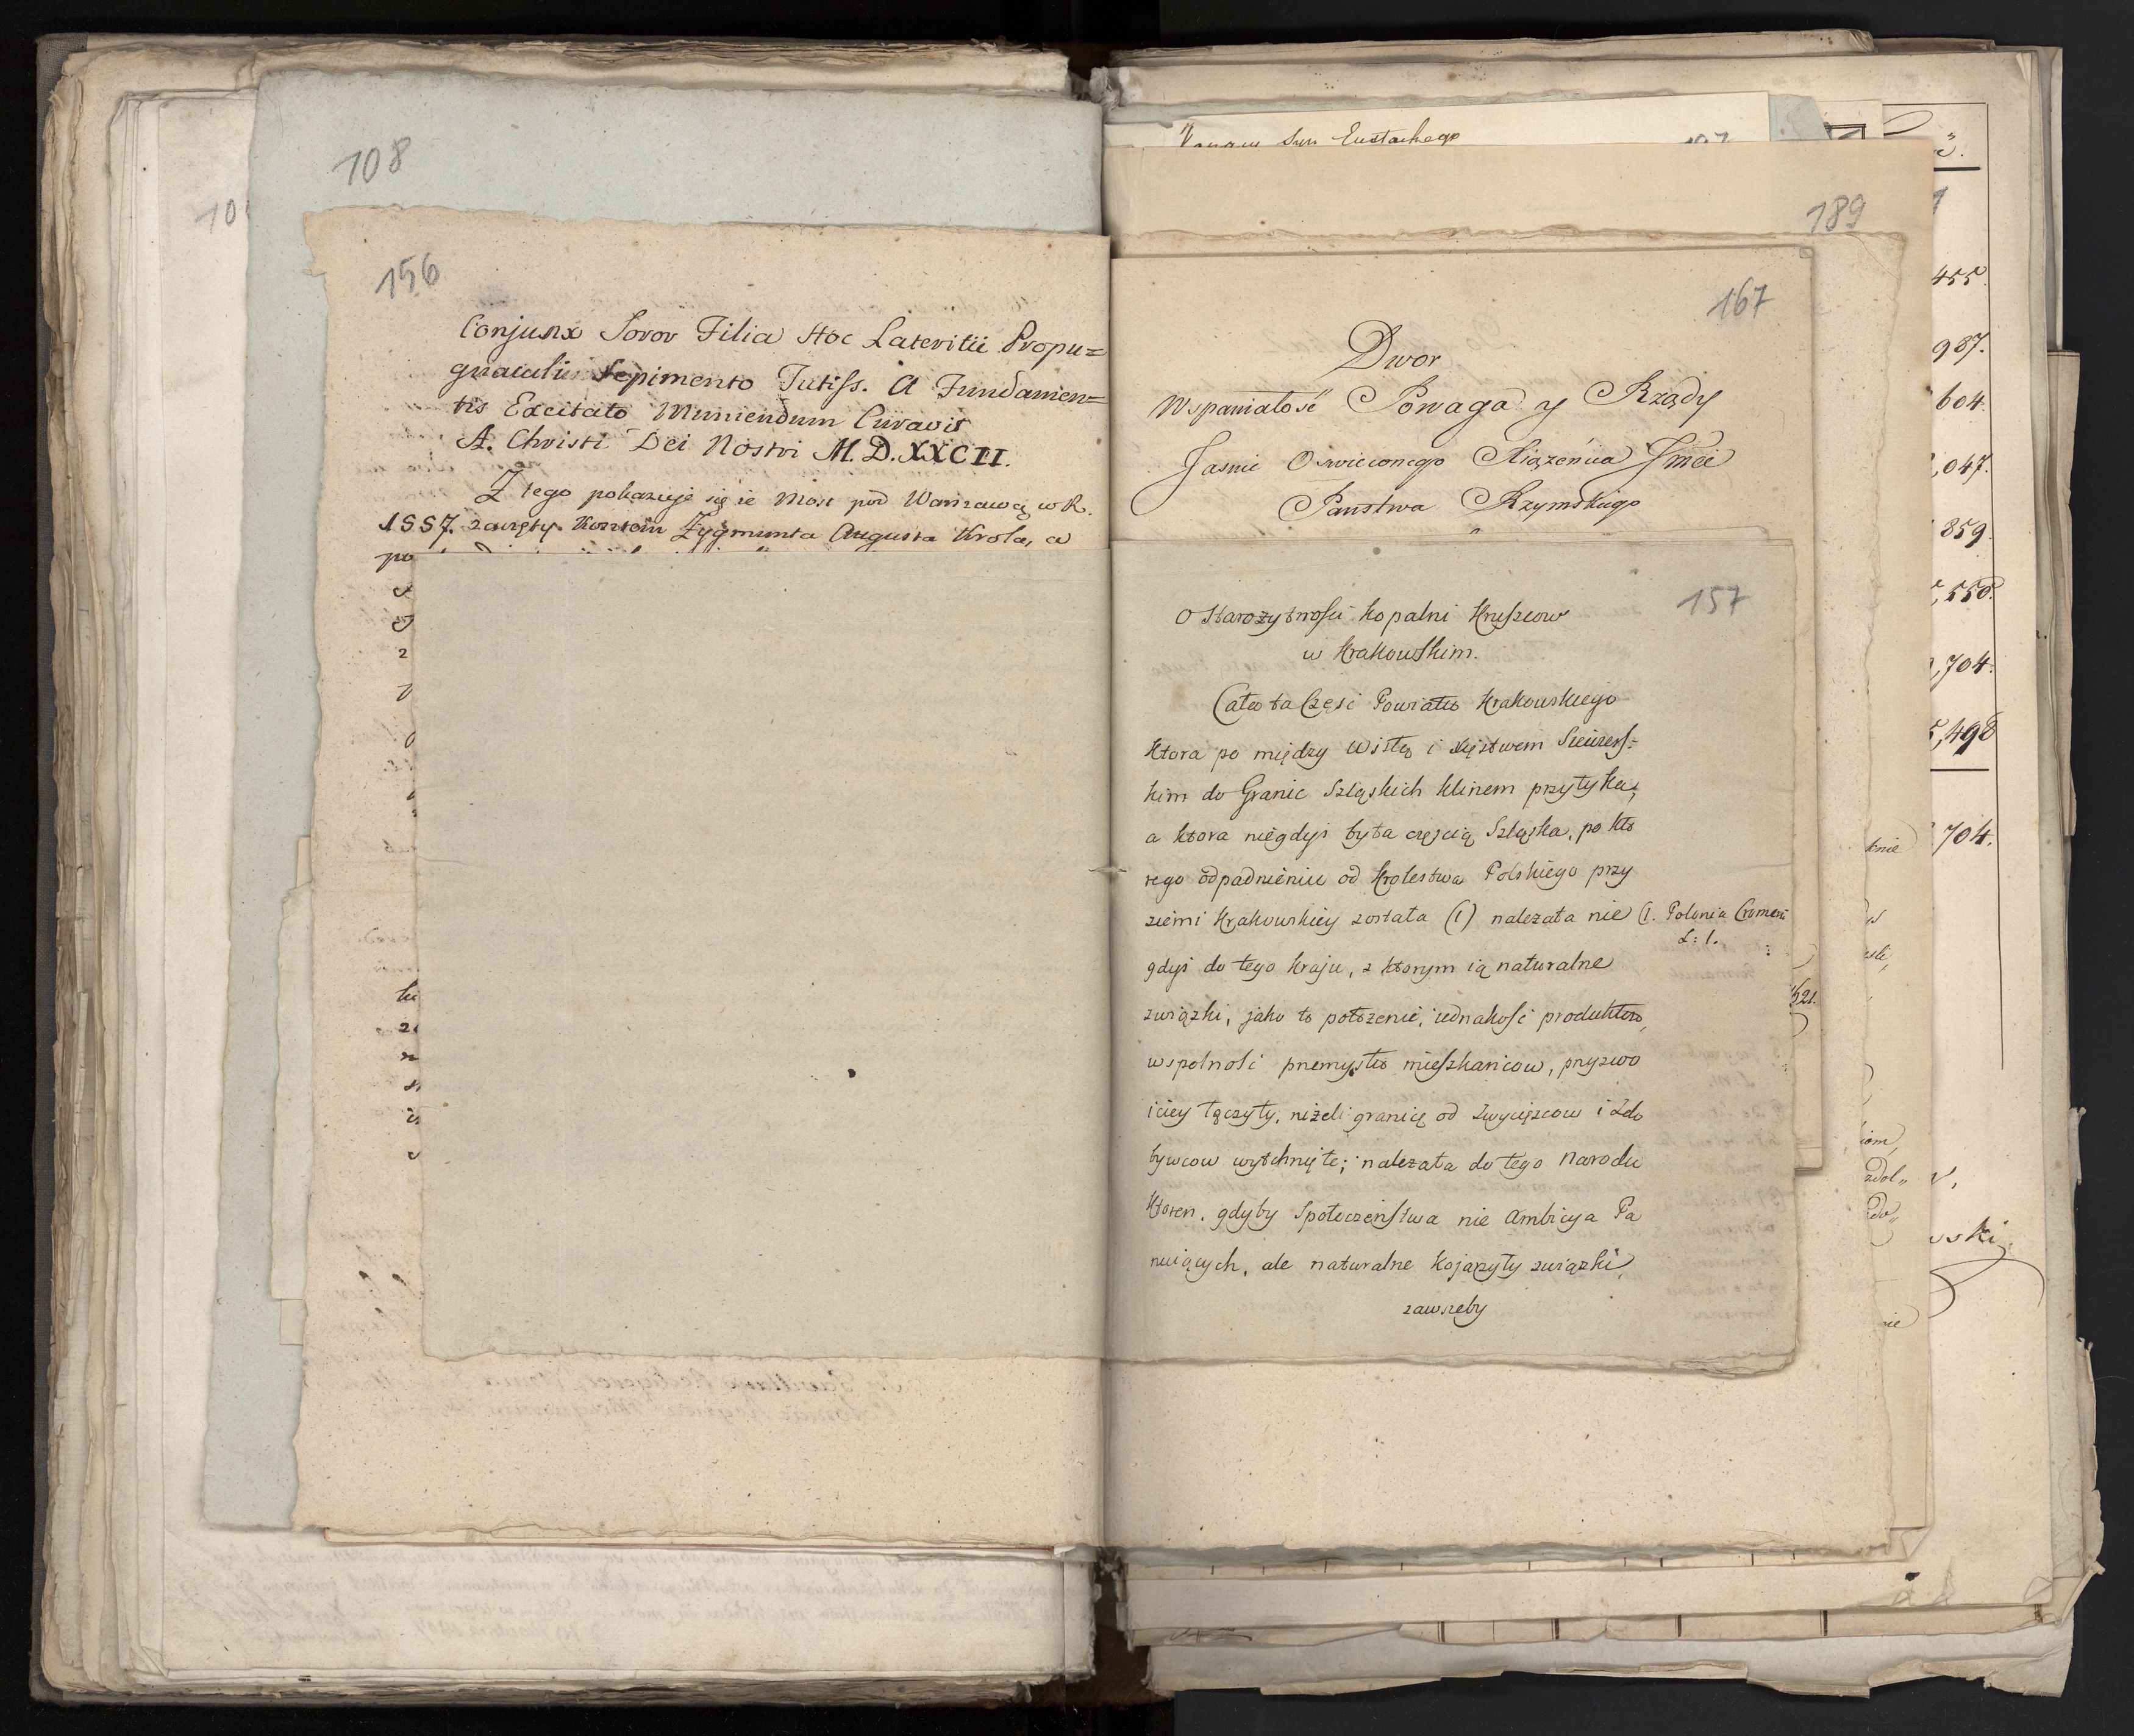 108
10
156
Conjunx Soror Filia Hoc Lateritii Propu=
gnaculi Sepimento Tutiss. A Fundamen=
tis Excitato Muniendum Curavit
A. Christi Dei Nostri M.D.XXCII.
Z tego pokazuje się że Most pod Warszawą w R.
1557. zawzięty Kosztem Zygmunta Augusta Krola, a
po
Eustachego
189
167
Dwor
Wspaniałość Powaga y Rządy
Jasnie Oswieconego Xiązęncia Jmći
Panstwa Rzymskiego
157
O Starożytności kopalni Kruszcow
w Krakowskim.
Cała ta Część Powiatu Krakowskiego
ktora po między Wisłą i Xięstwem Siewiers-
kim do Granic Szląskich klinem przytyka,
a ktora niegdyś była częscią Szląska, po kto
rego odpadnieniu od Krolestwa Polskiego przy
ziemi Krakowskiey została (1) należała nie
(1. Polonia Cromeri
L: 1.
gdyś do tego kraju, z ktorym ią naturalne
związki, jako to położenie, iednakość produktow,
wspolność przemysłu mieszkańcow, przyzwo
iciey łączyły, niżeli granicę od Zwycięzcow i Zdo
bywcow wytchnięte; należała do tego Narodu
ktoren, gdyby Społeczeństwa nie Ambicya Pa
nuiących, ale naturalne kojarzyły związki,
zawszeby
455.
987.
604.
,047.
859.
,550.
,704.
,498
704.
knie
521.
wski